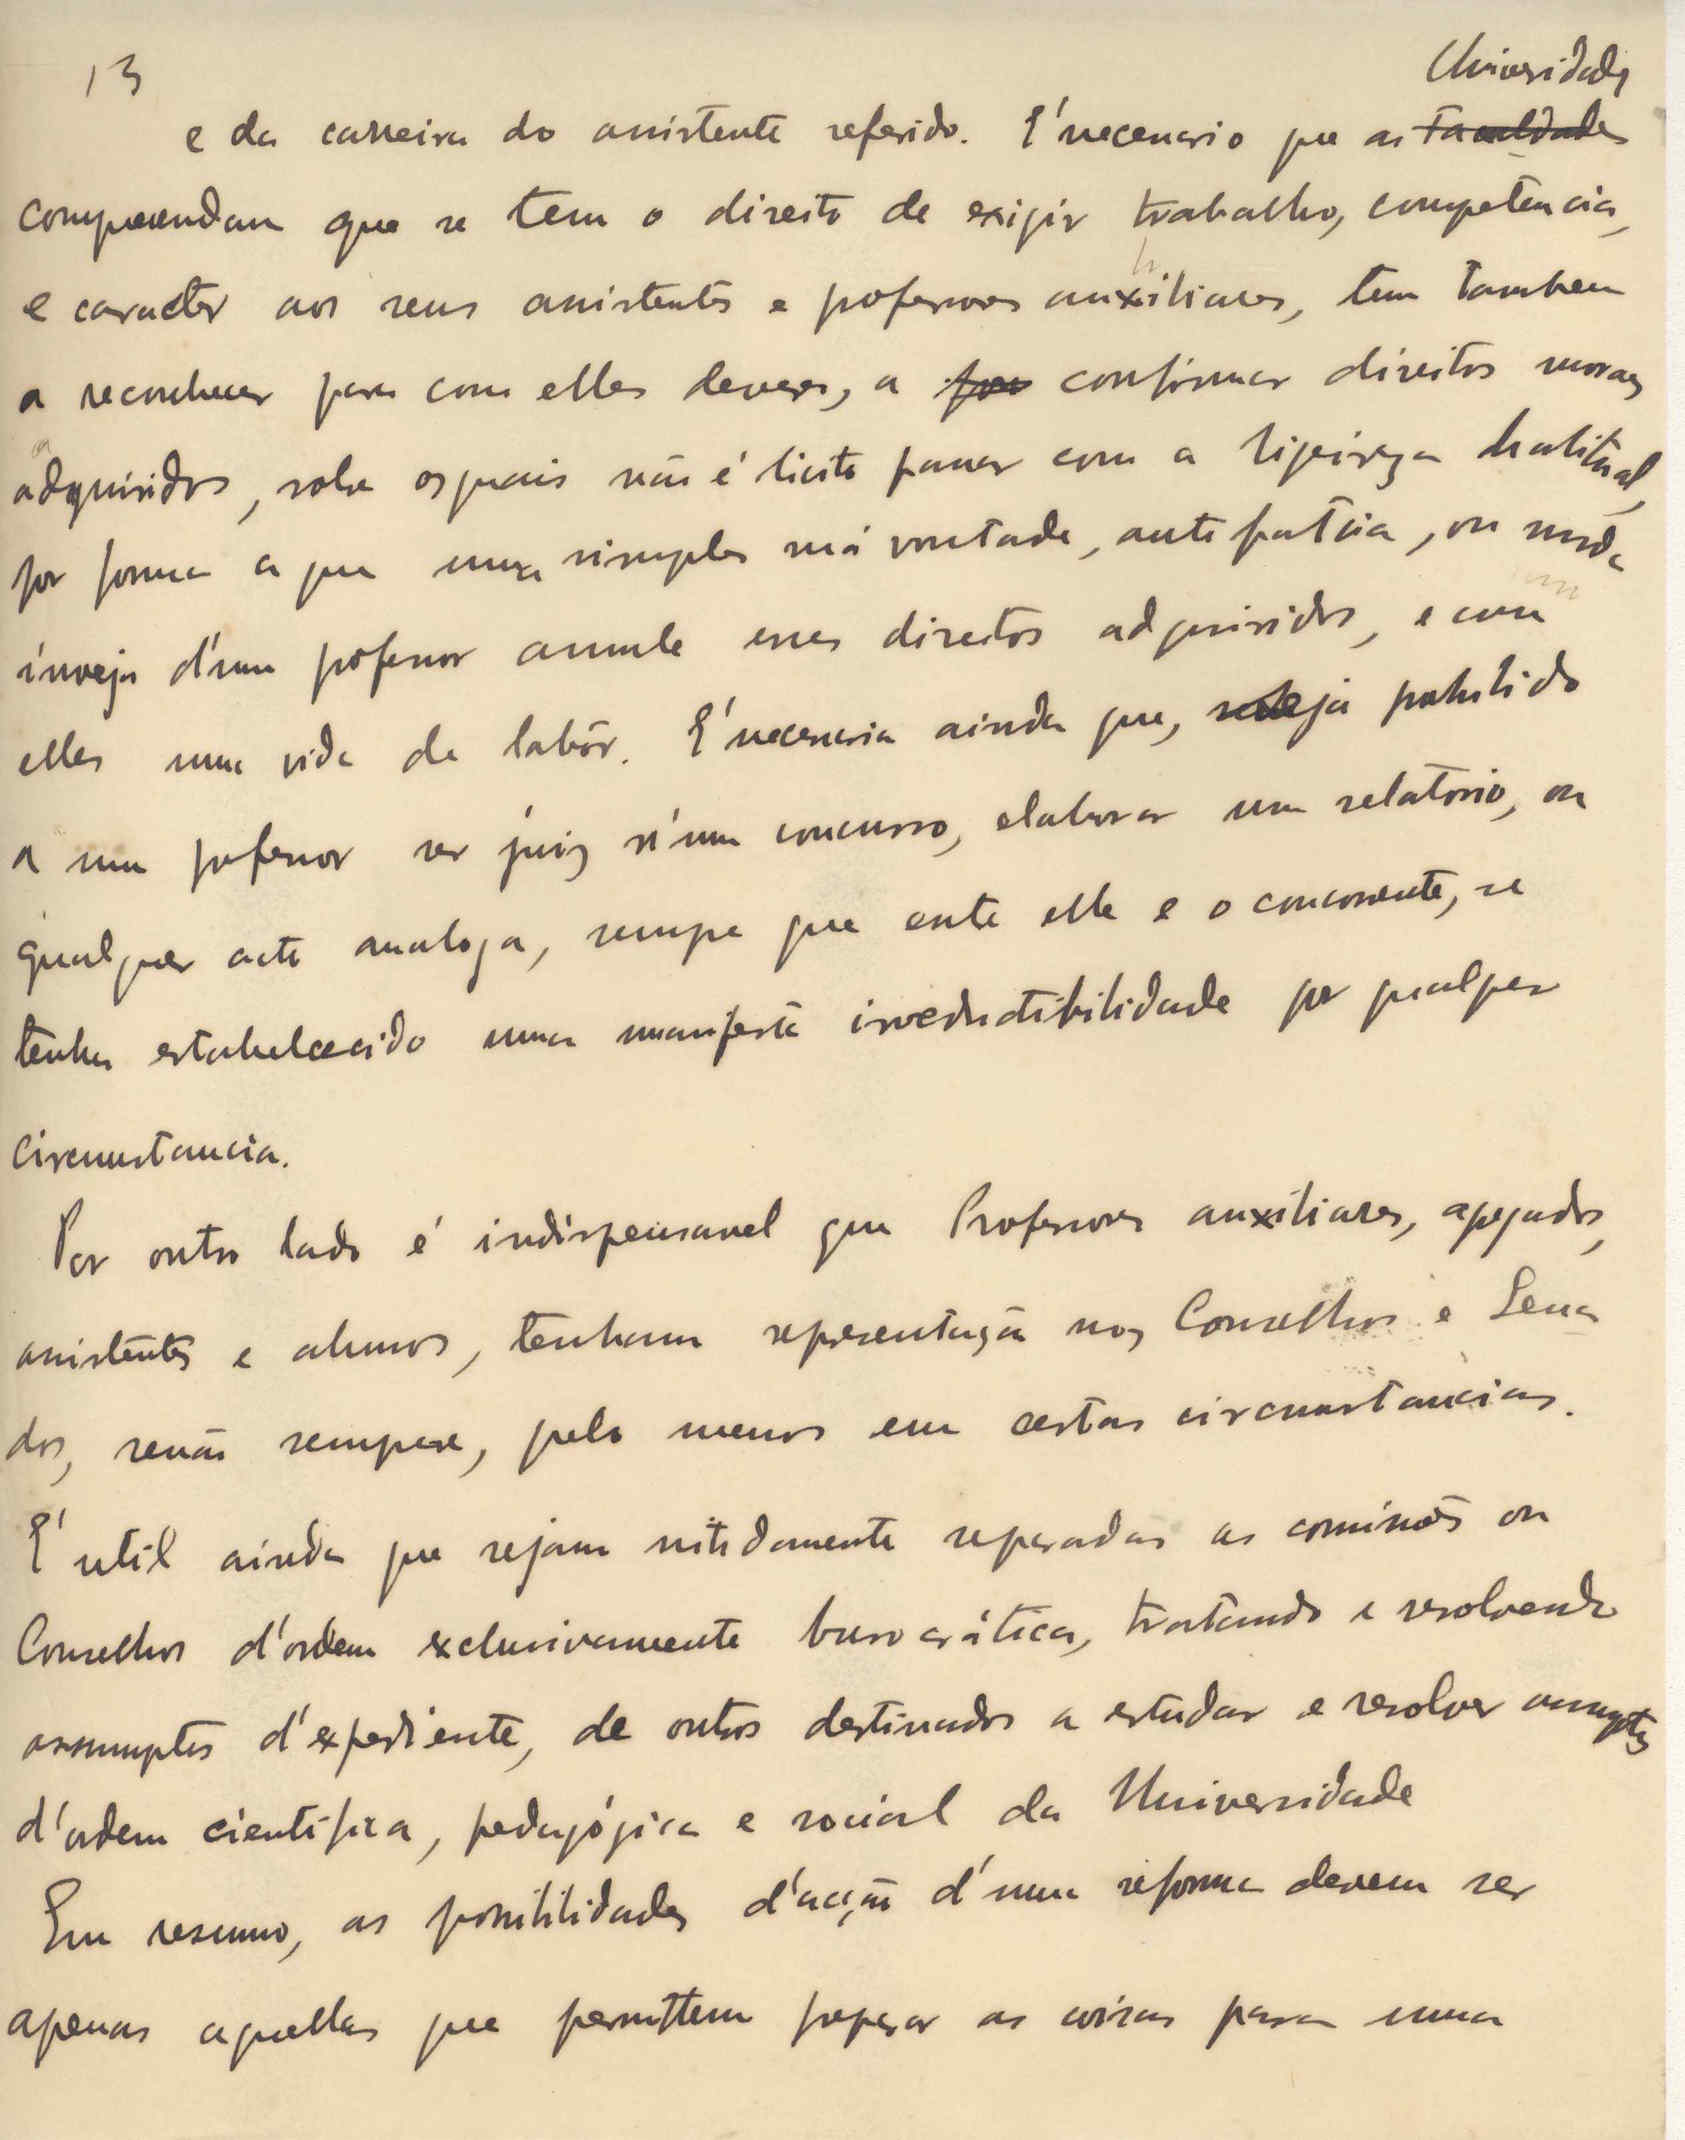 13
Universidades
e da carreira do assistente referido. E' necessario que as Faculdades
comprehendam que se tem o direito de exigir trabalho, competencia,
e caracter aos seus assistentes e professores auxiliares, tem tambem
a reconhecer para com elles deveres, a confirmar direitos moraes
adquiridos, sobre os quais não é licito passar com a ligeireza habitual,
por forma a que uma simples má vontade, antipatia, ou muda
inveja d'um professor annule esses direitos adquiridos, e com
elles uma vida de labôr. E' necessaria ainda que, seja prohibido
a um professor ser juiz n'um concurso, elaborar um relatorio, ou
qualquer acto analogo, sempre que entre elle e o concorrente, se
tenha estabelecido uma manifesta irreductibilidade por qualquer
circumstancia.
Por outro lado é indispensavel que Professores auxiliares, agregados,
assistentes e alumnos, tenham representação nos Conselhos e Sena
dos, senão sempre, pelo menos em certas circunstancias.
E' util ainda que sejam nitidamente separadas as comissões ou
Conselhos d'ordem exclusivamente burocrática, tratando e resolvendo
assumptos d'expediente, de outros destinados a estudar e resolver assumptos
d'ordem cientifica, pedagógica e social da Universidade
Em resumo, as possibilidades d'acção d'uma reforma devem ser
apenas aquellas que permittem preparar as coisas para uma